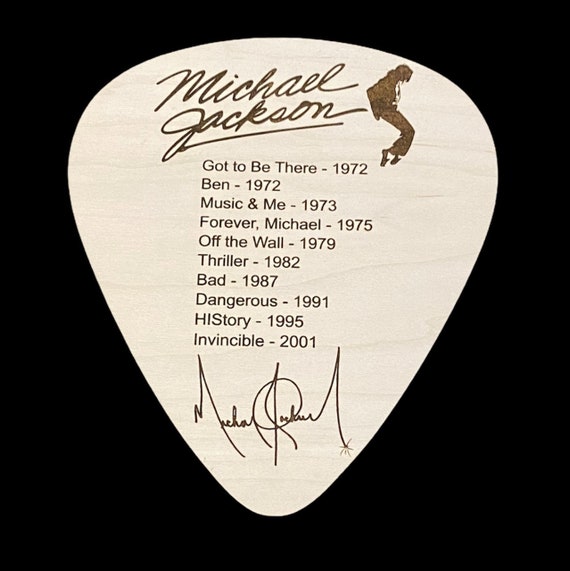 Michael
Jackson
Got to Be There - 1972
Ben - 1972
Music & Me - 1973
Forever, Michael - 1975
Off the Wall - 1979
Thriller - 1982
Bad - 1987
Dangerous - 1991
HIStory - 1995
Invincible - 2001
Michael Jackson